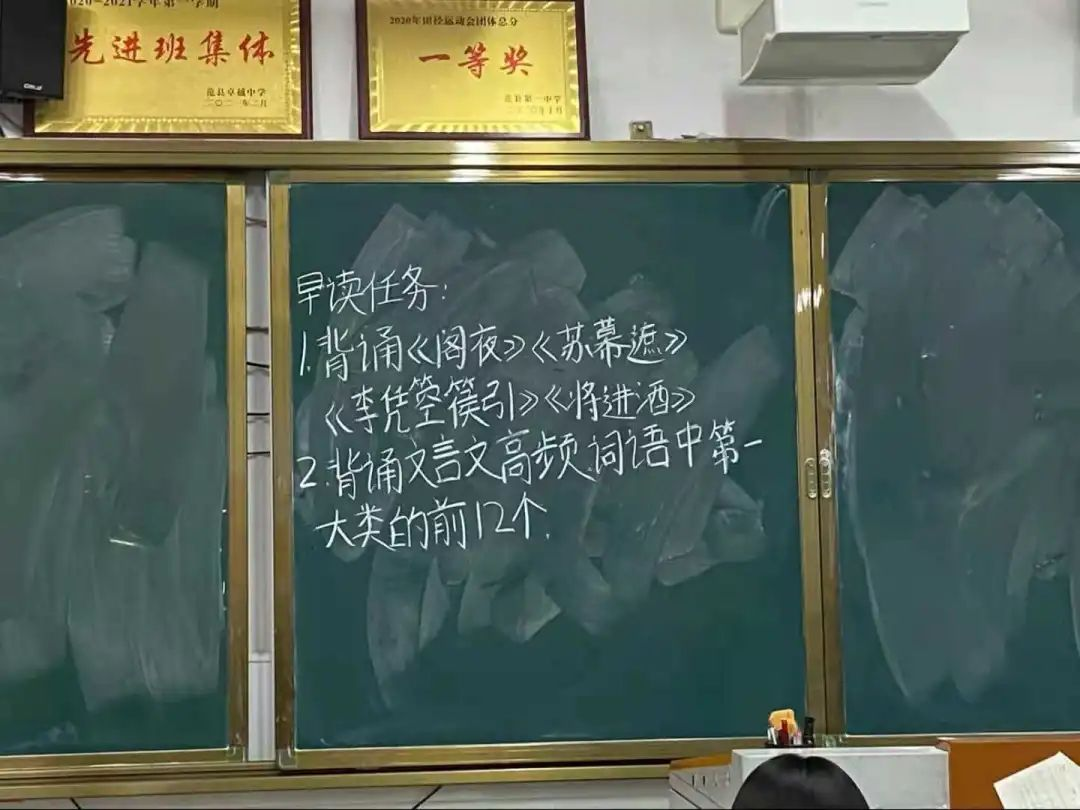 2020-2021学年第一学期
先进班集体
范县卓越中学
二〇二一年二月
2020年田径运动会团体总分
一等奖
范县第一中学
二〇二〇年十月
早读任务：
1.背诵《阁夜》《苏幕遮》
《李凭箜篌引》《将进酒》
2.背诵文言文高频词语中第一
大类的前12个.